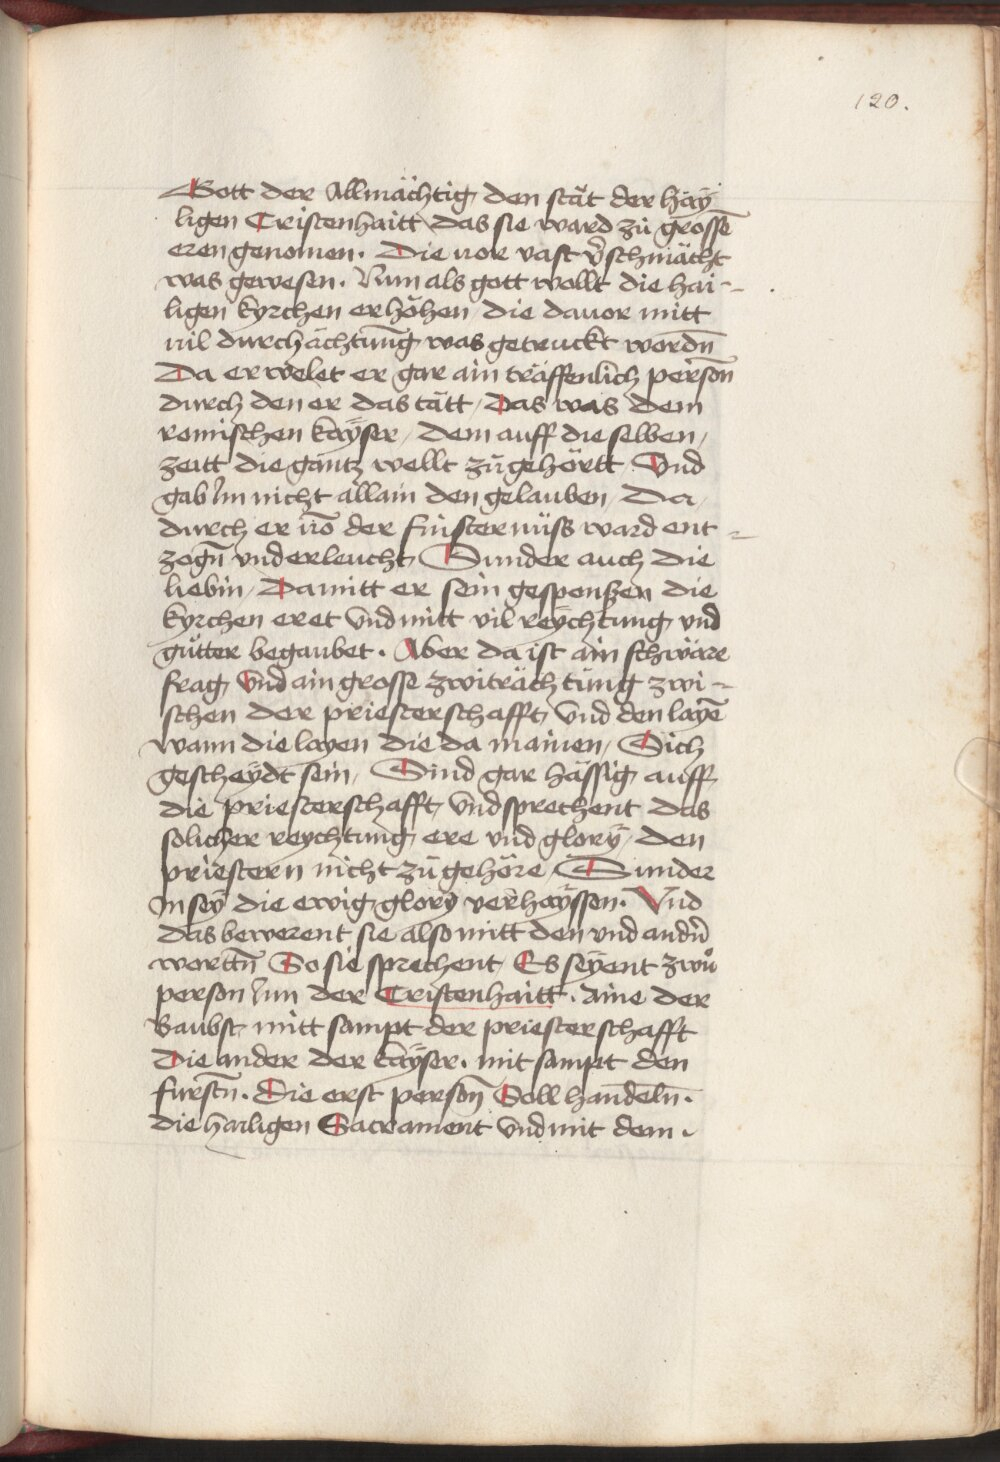 120.
Gott der Allmächtig den stät der häy
ligen Cristenhaitt das sie ward zů grossē
eren genomen. Die vor vast v̄schmächt
was gewesen. Nun als gott wollt die hai-
ligen kyrchen erhöhen / die dauor mitt
vil durchächtung was getruckt wordn̄
Da erwelet er gar ain träffenlich person̄
durch den er das tätt / Das was dem
remischen kayser / dem auff die selben /
zeitt die gantz wellt zůgehörtt Vnd
gab Im nicht allain den gelauben / Da /
durch er vō der finsternüss ward ent-
zogn̄ vnd erleucht Sunder auch die
liebin / Damitt er sein gesponßen die
kyrchen eret vnd mitt vil reychtung vnd
gůtter begaubet. Aber da ist ain schwäre
frag vnd ain grosse zwiträchtung zwi-
schen der priesterschafft vnd den layē
wann die layen die da mainen / Sich
gescheydt sein / Sind gar hässig auff
die priesterschafft vnd sprechent das
solicher reychtung ere vnd glory / den
priestern nicht zůgehöre / Sunder
In sey die ewig glory verhayssen. Vnd
das bewerent sie also mitt den vnd andn̄
worttn̄ So sie sprechent Es seyent zwů
person Inn der Cristenhaitt. aine der
Baubst mitt sampt der priesterschafft
Die ander der kayser. mit sampt den
furstn̄. Die erst person̄ Soll handeln̄.
die hailigen Sacrament vnd mit dem.